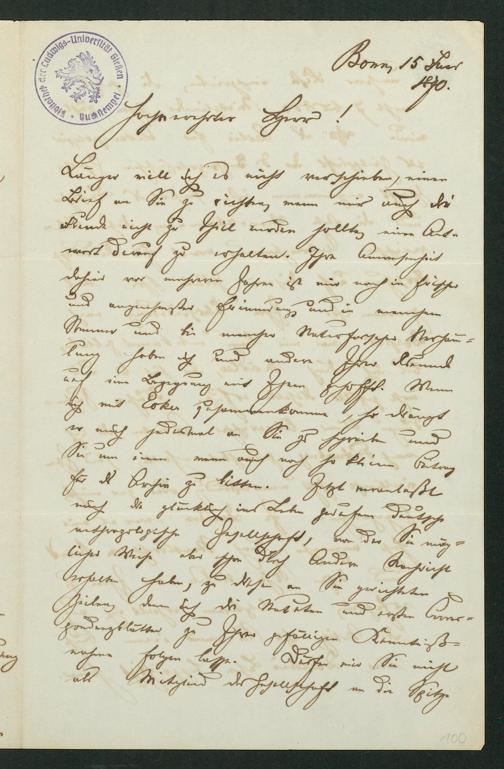 Bibliothek der Ludwigs-Universität Gießen
Buchstempel
Bonn, 15 Juni
1870.
Hochverehrter Herr!
Länger will ich es nicht verschieben, einen
Brief an Sie zu richten, wenn mir auch die
Freude nicht zu Theil werden sollte, eine Ant-
wort darauf zu erhalten. Ihre Anwesenheit
dahier vor mehreren Jahren ist mir noch in frischer
und angenehmster Erinnerung und in manchen
und bei mancher Naturforscher Versamm-
lung haben ich und andere Ihrer Freunde
auf eine Begegnung mit Ihnen gehofft. Wenn
ich mit Ecker zusammenkomme, so drängt
er mich jedesmal an Sie zu schreiben und
Sie um einen wenn auch noch so kleinen Beitrag
für das Archiv zu bitten. Jetzt veranlaßt
mich die glücklich ins Leben gerufene deutsche
anthropologische Gesellschaft, von der Sie mög-
licher Weise aber schon durch Andere Nachricht
erhalten haben, zu diesen an Sie gerichteten
Zeilen, denen ich die Statuten und ersten Corres-
pondenzblätter zu Ihrer gefälligen Kenntniß-
nahme folgen lasse. Dürfen wir Sie nicht
als Mitglied der Gesellschaft an die Spitze
100